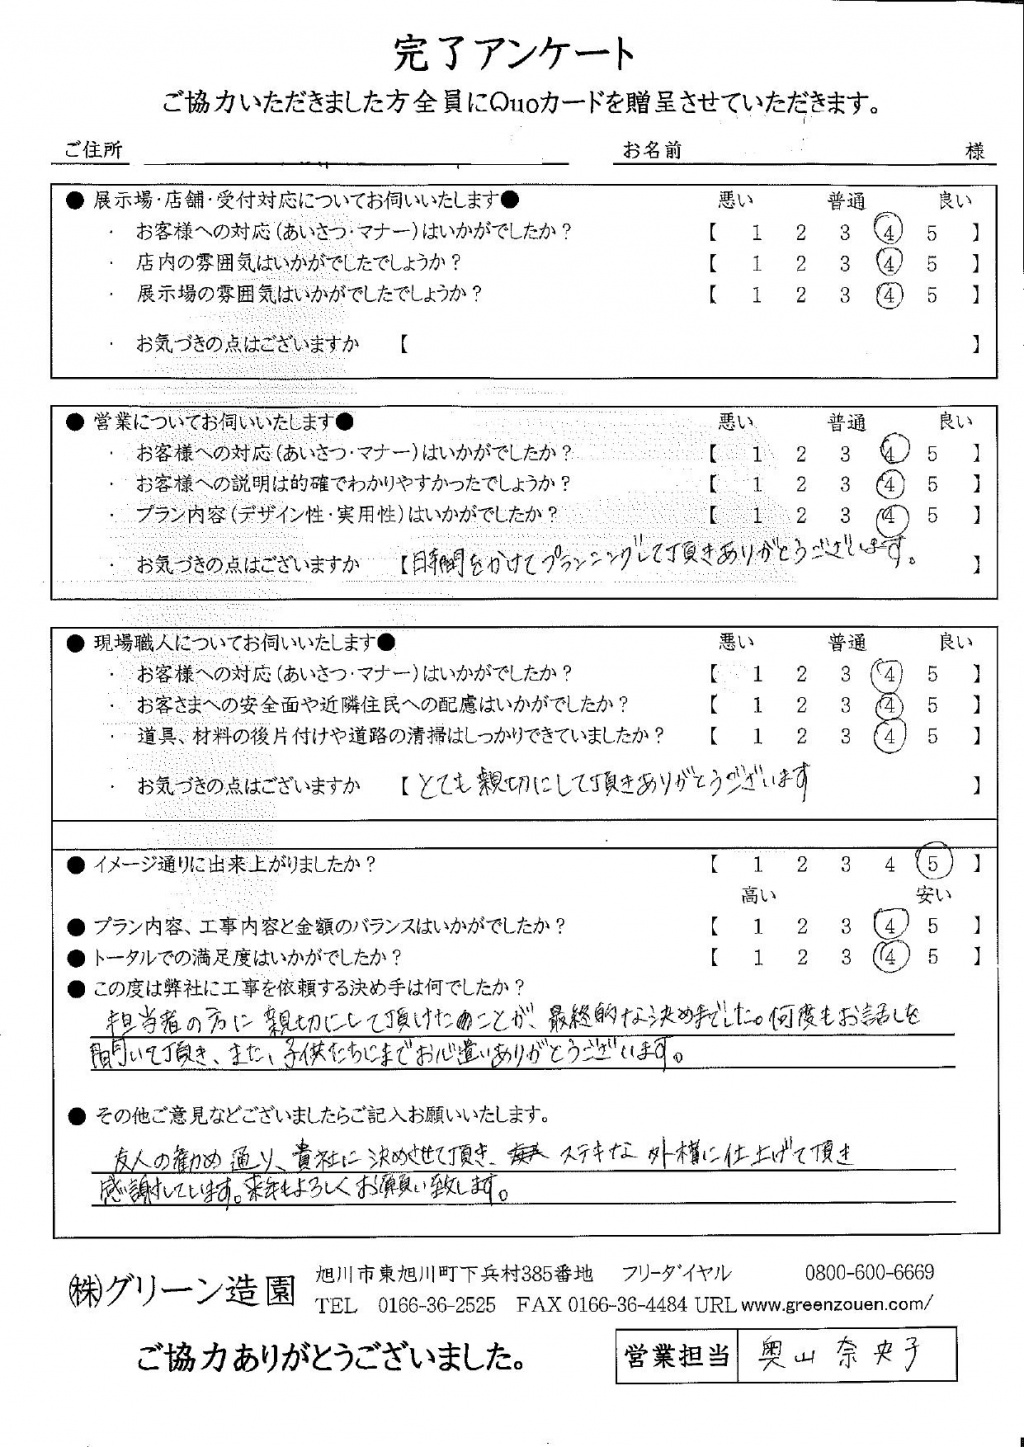 完了アンケート
ご協力いただきました方全員にQuoカードを贈呈させていただきます。
ご住所 お名前 様
● 展示場・店舗・受付対応についてお伺いいたします● 悪い 普通 良い
・ お客様への対応(あいさつ・マナー)はいかがでしたか？ 【 1 2 3 4 5 】
・ 店内の雰囲気はいかがでしたでしょうか？ 【 1 2 3 4 5 】
・ 展示場の雰囲気はいかがでしたでしょうか？ 【 1 2 3 4 5 】
・ お気づきの点はございますか 【 】
● 営業についてお伺いいたします● 悪い 普通 良い
・ お客様への対応(あいさつ・マナー)はいかがでしたか？ 【 1 2 3 4 5 】
・ お客様への説明は的確でわかりやすかったでしょうか？ 【 1 2 3 4 5 】
・ プラン内容(デザイン性・実用性)はいかがでしたか？ 【 1 2 3 4 5 】
・ お気づきの点はございますか 【時間をかけてプランニングして頂きありがとうございます。 】
● 現場職人についてお伺いいたします● 悪い 普通 良い
・ お客様への対応(あいさつ・マナー)はいかがでしたか？ 【 1 2 3 4 5 】
・ お客さまへの安全面や近隣住民への配慮はいかがでしたか？ 【 1 2 3 4 5 】
・ 道具、材料の後片付けや道路の清掃はしっかりできていましたか？ 【 1 2 3 4 5 】
・ お気づきの点はございますか 【とても親切にして頂きありがとうございます 】
● イメージ通りに出来上がりましたか？ 【 1 2 3 4 5 】
高い 安い
● プラン内容、工事内容と金額のバランスはいかがでしたか？ 【 1 2 3 4 5 】
● トータルでの満足度はいかがでしたか？ 【 1 2 3 4 5 】
● この度は弊社に工事を依頼する決め手は何でしたか？
担当者の方に親切にして頂けたことが、最終的な決め手でした。何度もお話しを
聞いて頂き、また、子供たちにまでお心遣いありがとうございます。
● その他ご意見などございましたらご記入お願いいたします。
友人の勧め通り、貴社に決めさせて頂き、ステキな外構に仕上げて頂き
感謝しています。来年もよろしくお願い致します。
㈱グリーン造園 旭川市東旭川町下兵村385番地 フリーダイヤル 0800-600-6669
TEL 0166-36-2525 FAX 0166-36-4484 URL www.greenzouen.com/
ご協力ありがとうございました。 営業担当 奥山奈央子